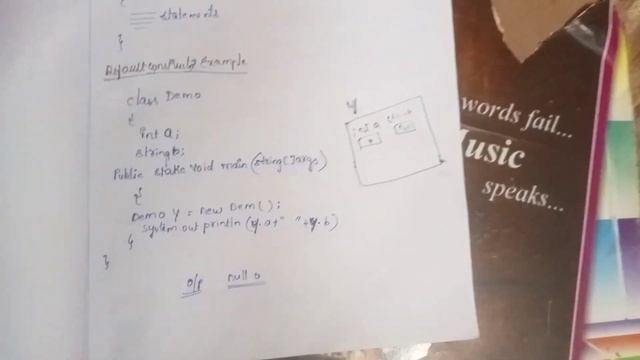 statements
}
Default constructor Example
class Demo
{
int a;
string b;
Public static void main (string []args)
{
Demo y = new Dem( );
system.out.println (y.a+" "+y.b)
}
}
o/p null 0
y
words fail...
Music
speaks...